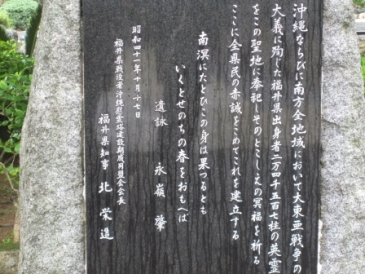 沖縄ならびに南方全地域において大東亜戦争の
大義に殉じた福井県出身者二万四千五百七柱の英霊
をこの聖地に奉祀しそのとこしえの冥福を祈る
ここに全県民の赤誠をこめてこれを建立する
南溟にたとひこの身は果つるとも
いくとせのちの春をおもへば
遺詠 永嶺 肇
昭和四十一年十月十七日
福井県戦没者沖縄慰霊塔建設期成同盟会会長
福井県知事 北 栄造